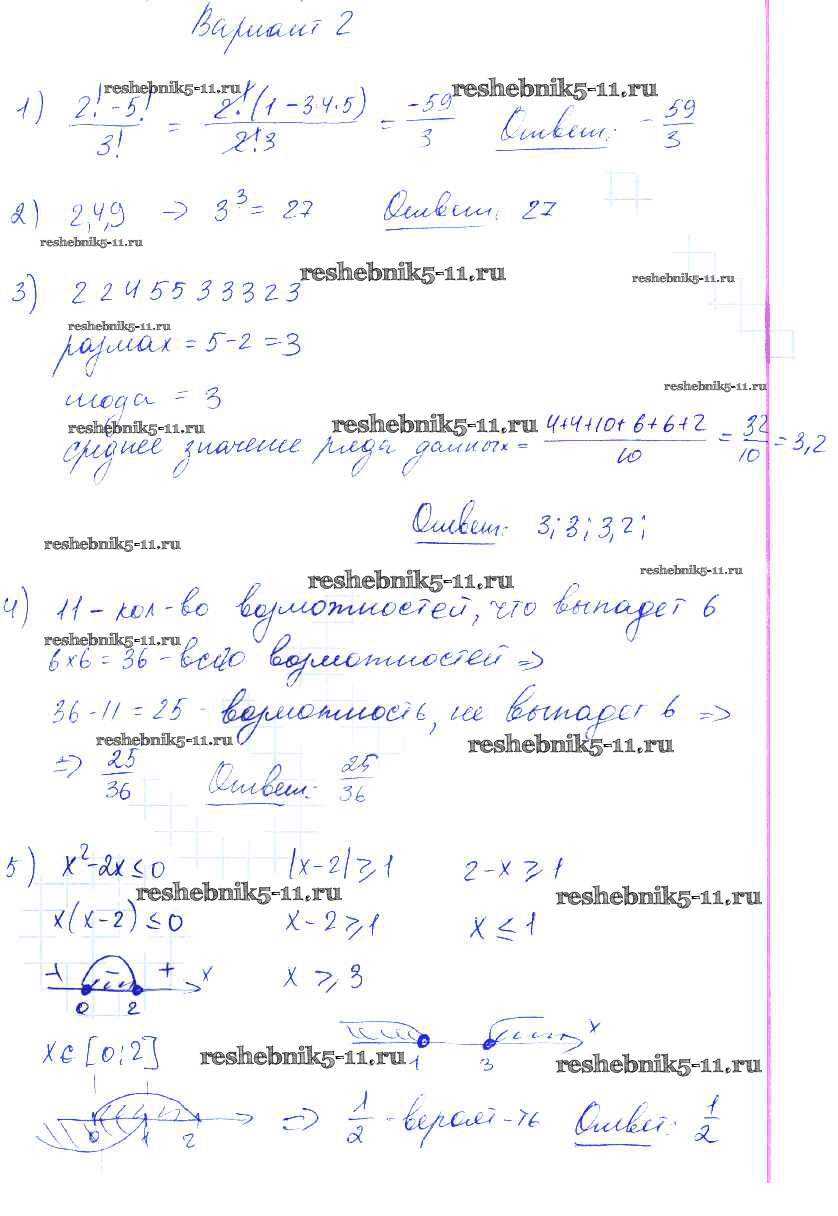 Вариант 2
reshebnik5-11.ru reshebnik5-11.ru
1) (2! - 5!)/3! = (2! (1 - 3·4·5))/(2! 3) = -59/3 Ответ: -59/3
2) 2,4,9 → 3³ = 27 Ответ: 27
reshebnik5-11.ru
reshebnik5-11.ru reshebnik5-11.ru
3) 2 2 4 5 5 3 3 3 2 3
reshebnik5-11.ru
размах = 5-2 = 3
reshebnik5-11.ru
мода = 3
reshebnik5-11.ru reshebnik5-11.ru
среднее значение ряда данных = (4+4+10+6+6+2)/10 = 32/10 = 3,2
Ответ: 3; 3; 3,2;
reshebnik5-11.ru
reshebnik5-11.ru reshebnik5-11.ru
4) 11 - кол-во возможностей, что выпадет 6
reshebnik5-11.ru
6×6 = 36 - всего возможностей ⇒
36 - 11 = 25 - возможность, не выпадет 6 ⇒
reshebnik5-11.ru reshebnik5-11.ru
⇒ 25/36 Ответ: 25/36
5) x² - 2x ≤ 0 |x-2| ⩾ 1 2-x ⩾ 1
reshebnik5-11.ru reshebnik5-11.ru
x(x-2) ≤ 0 x-2 ⩾ 1 x ≤ 1
+ - + x x ⩾ 3
0 2
x
x ∈ [0;2] reshebnik5-11.ru 1 3 reshebnik5-11.ru
0 1 2 ⇒ 1/2 - вероят-ть Ответ: 1/2